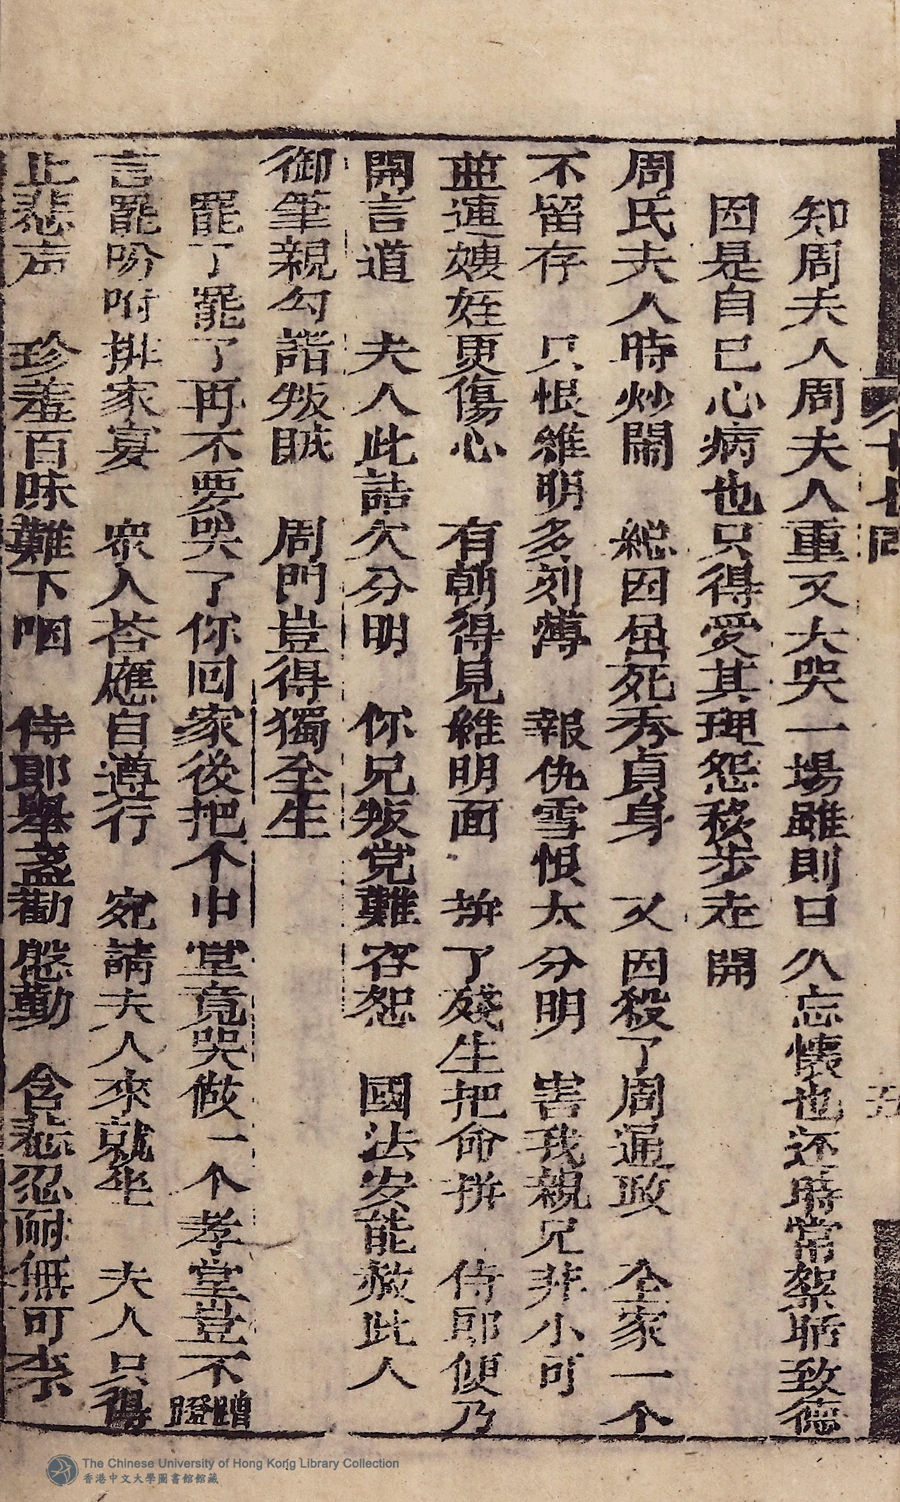 知周夫人周夫人重又大哭一場雖則日久忘懷也还時常絮聒致德
因是自己心病也只得愛其理怨移步走開
周氏夫人時炒鬧 総因屈死秀貞身 又因殺了周通政 全家一个
不留存 只恨維明多刻薄 報仇雪恨太分明 害我親兄非小可
並連嫂姪更傷心 有朝得見維明面 拚了殘生把命拼 侍郎便乃
開言道 夫人此語欠分明 你兄叛党難容恕 國法安能赦此人
御筆親勾諸叛賊 周門豈得獨全生
罷了罷了再不要哭了你回家後把个中堂竟哭做一个孝堂豈不
言罷吩咐排家宴 衆人荅應自遵行 宛請夫人來就坐 夫人只得
止悲声 珍羞百味難下咽 侍郎舉盞勸慇勤 含悲忍耐無可柰
八十七囬
五
The Chinese University of Hong Kong Library Collection
香港中文大學圖書館館藏